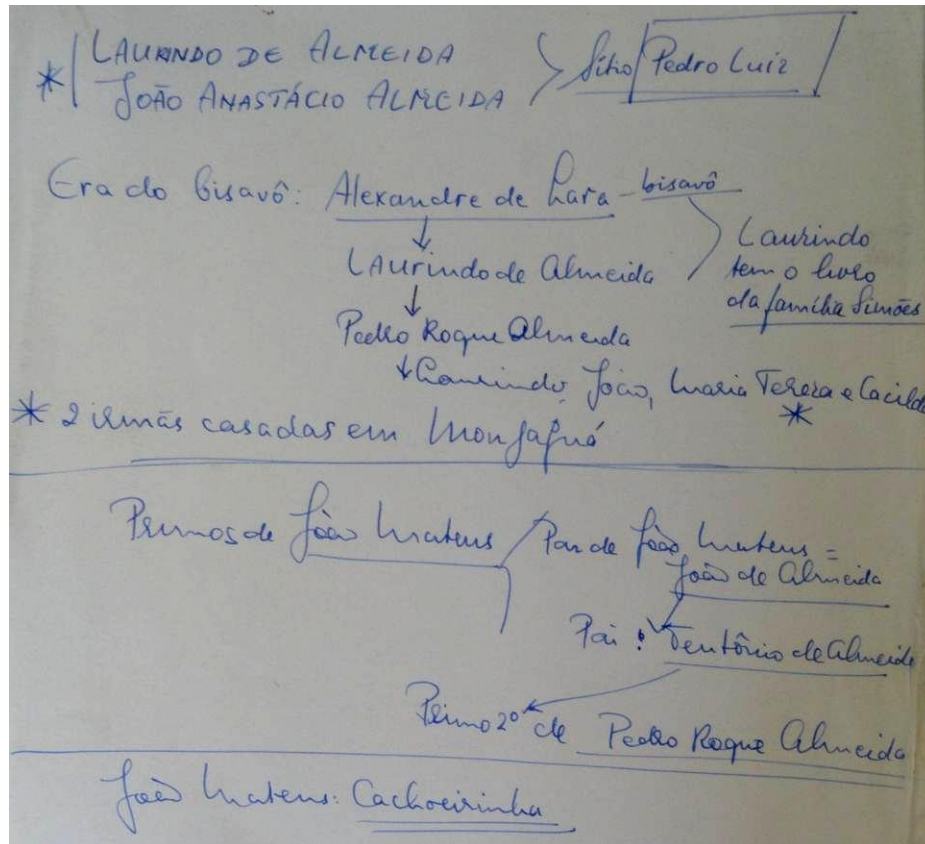 * LAURINDO DE ALMEIDA
JOÃO ANASTÁCIO ALMEIDA
Sítio Pedro Luiz
Era do bisavô: Alexandre de Lara - bisavô
Laurindo de Almeida
Laurindo
tem o livro
da família Simões
Pedro Roque Almeida
Laurindo, João, Maria Tereza e Cacilda
*
* 2 irmãs casadas em Mongaguá
Primos de João Mateus
Pai de João Mateus =
João de Almeida
Pai: de Almeida
Primo 2º de Pedro Roque Almeida
João Mateus: Cachoeirinha